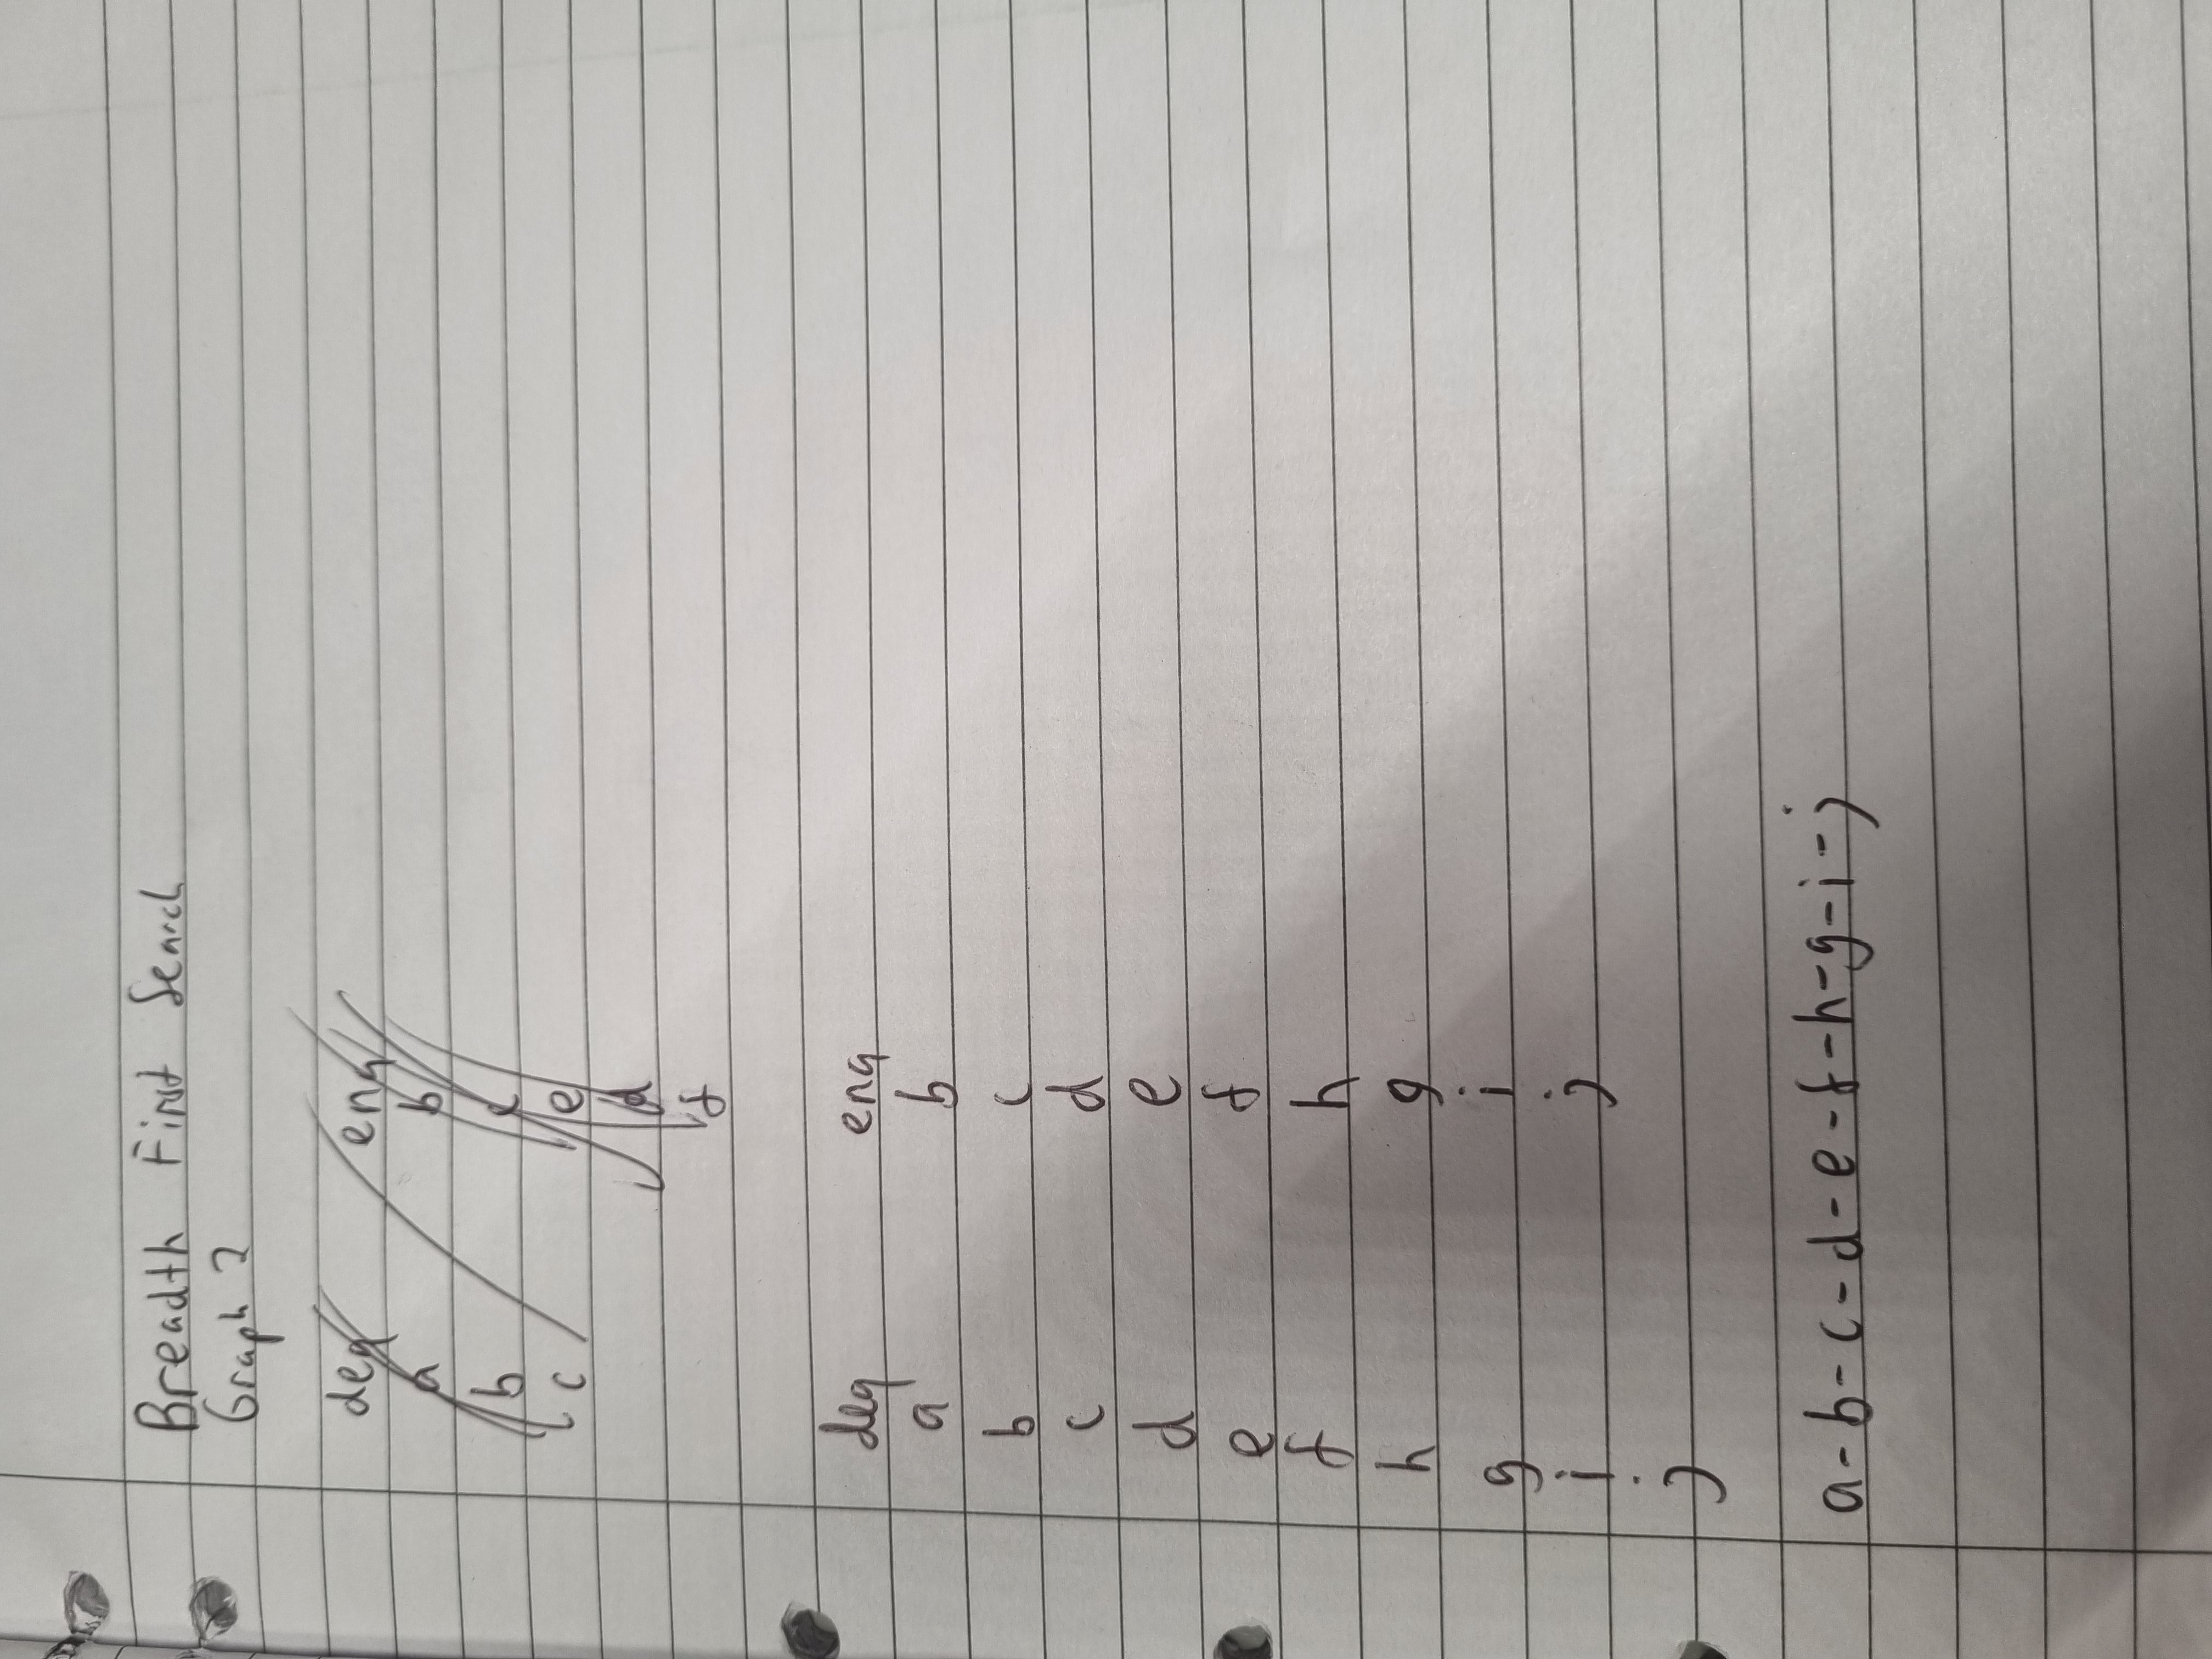 Breadth First Search
Graph 2
deq enq
a b
b c
c e
d
f
deq enq
a b
b c
c d
d e
e f
f h
h g
g i
i j
j
a-b-c-d-e-f-h-g-i-j